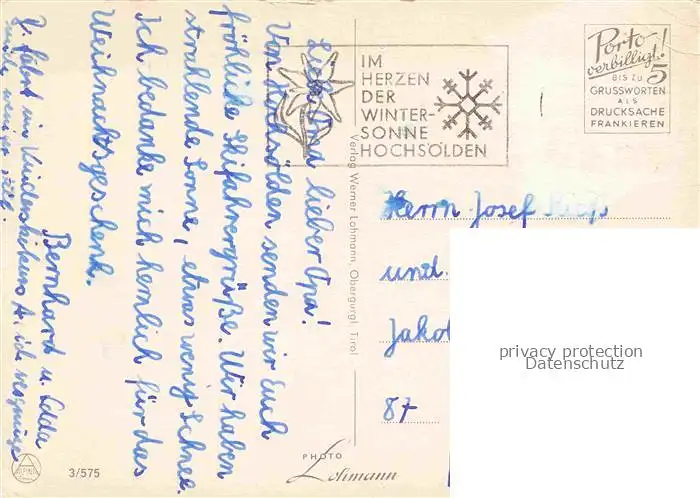 Liebe Oma, lieber Opa!
Von Hochsölden senden wir Euch
fröhliche Skifahrergrüße. Wir haben
strahlende Sonne, etwas wenig Schnee.
Ich bedanke mich herzlich für das
Weihnachtsgeschenk.
Bernhard u.
fährt im Kinderskikurs
IM
HERZEN
DER
WINTER-
SONNE
HOCHSÖLDEN
Porto-
verbilligt!
BIS ZU 5
GRUSSWORTEN
ALS
DRUCKSACHE
FRANKIEREN
Verlag Werner Lohmann, Obergurgl, Tirol
Herrn Josef
und
Jakob
87
privacy protection
Datenschutz
PHOTO
Lohmann
3/575